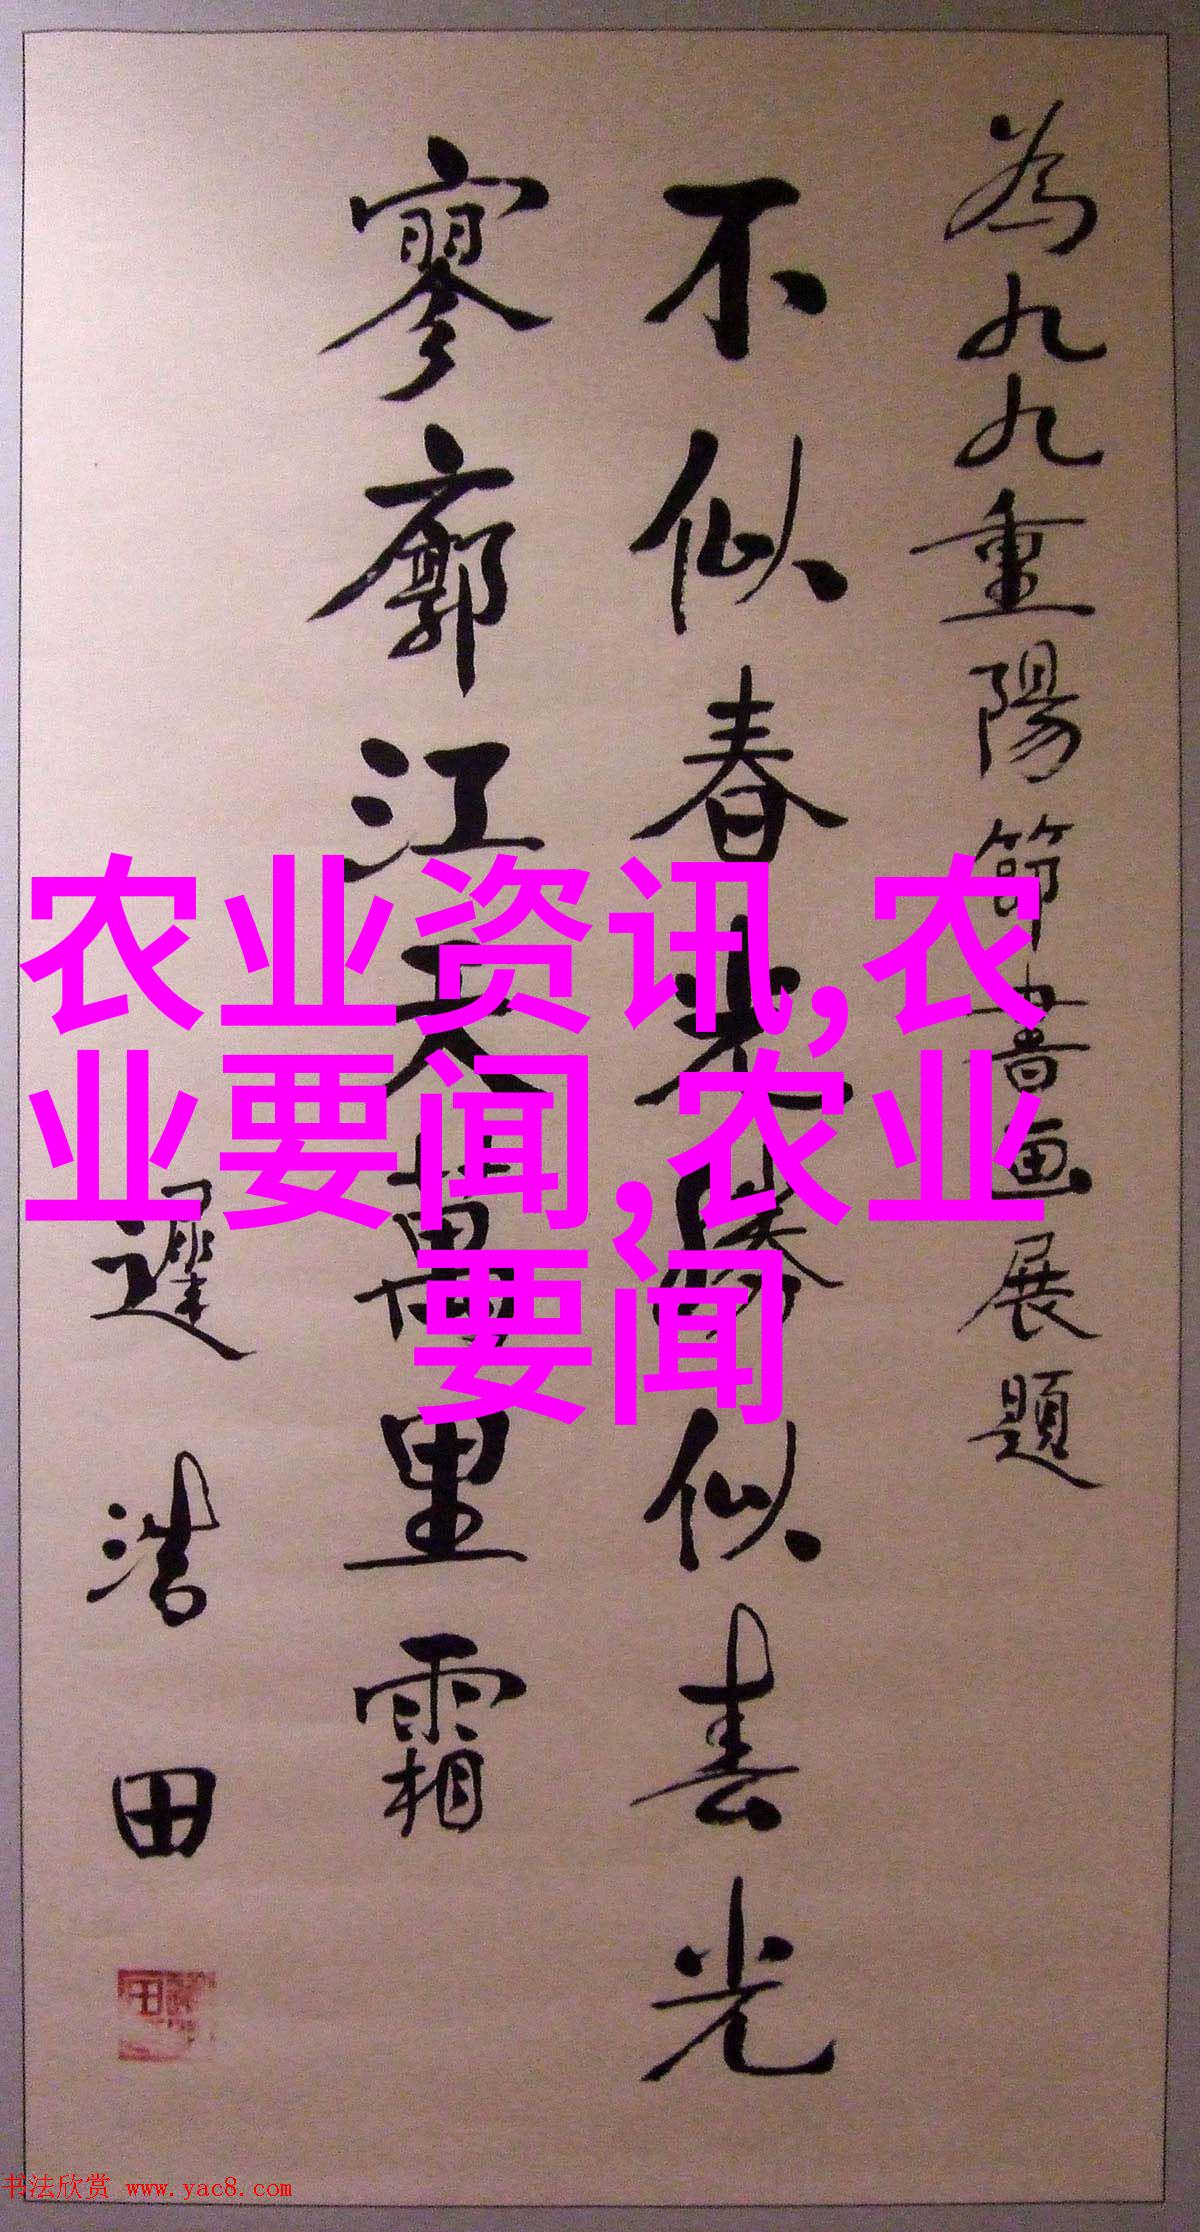 為九九重陽節書画展題
不似春光勝似春光
寥廓江天萬里霜
遲浩田
农业资讯,农
业要闻,农业
要闻
书法欣赏 www.yac8.com